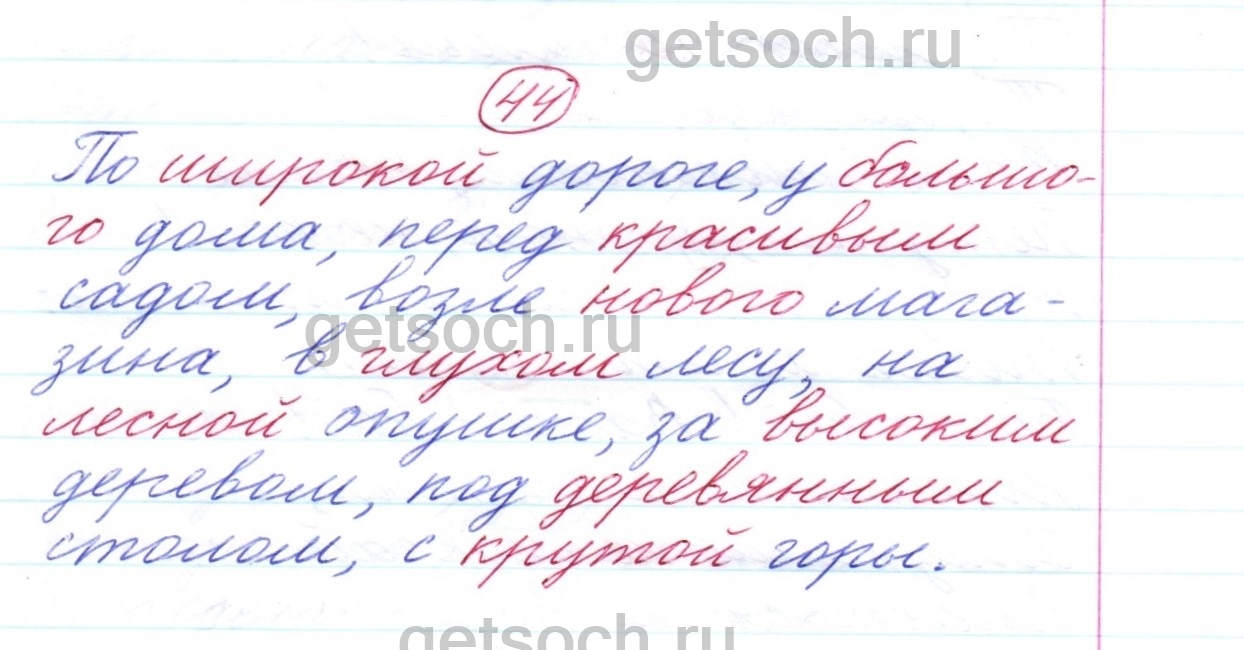 getsoch.ru
44
По широкой дороге, у большо-
го дома, перед красивым
садом, возле нового мага-
зина, в глухом лесу, на
getsoch.ru
лесной опушке, за высоким
деревом, под деревянным
столом, с крутой горы.
getsoch.ru